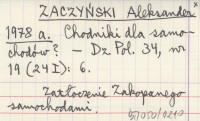 ZACZYŃSKI Aleksander
1978 a. Chodniki dla samo-
chodów? – Dz Pol. 34, nr
19 (24 I): 6.
Zatłoczenie Zakopanego
samochodami.